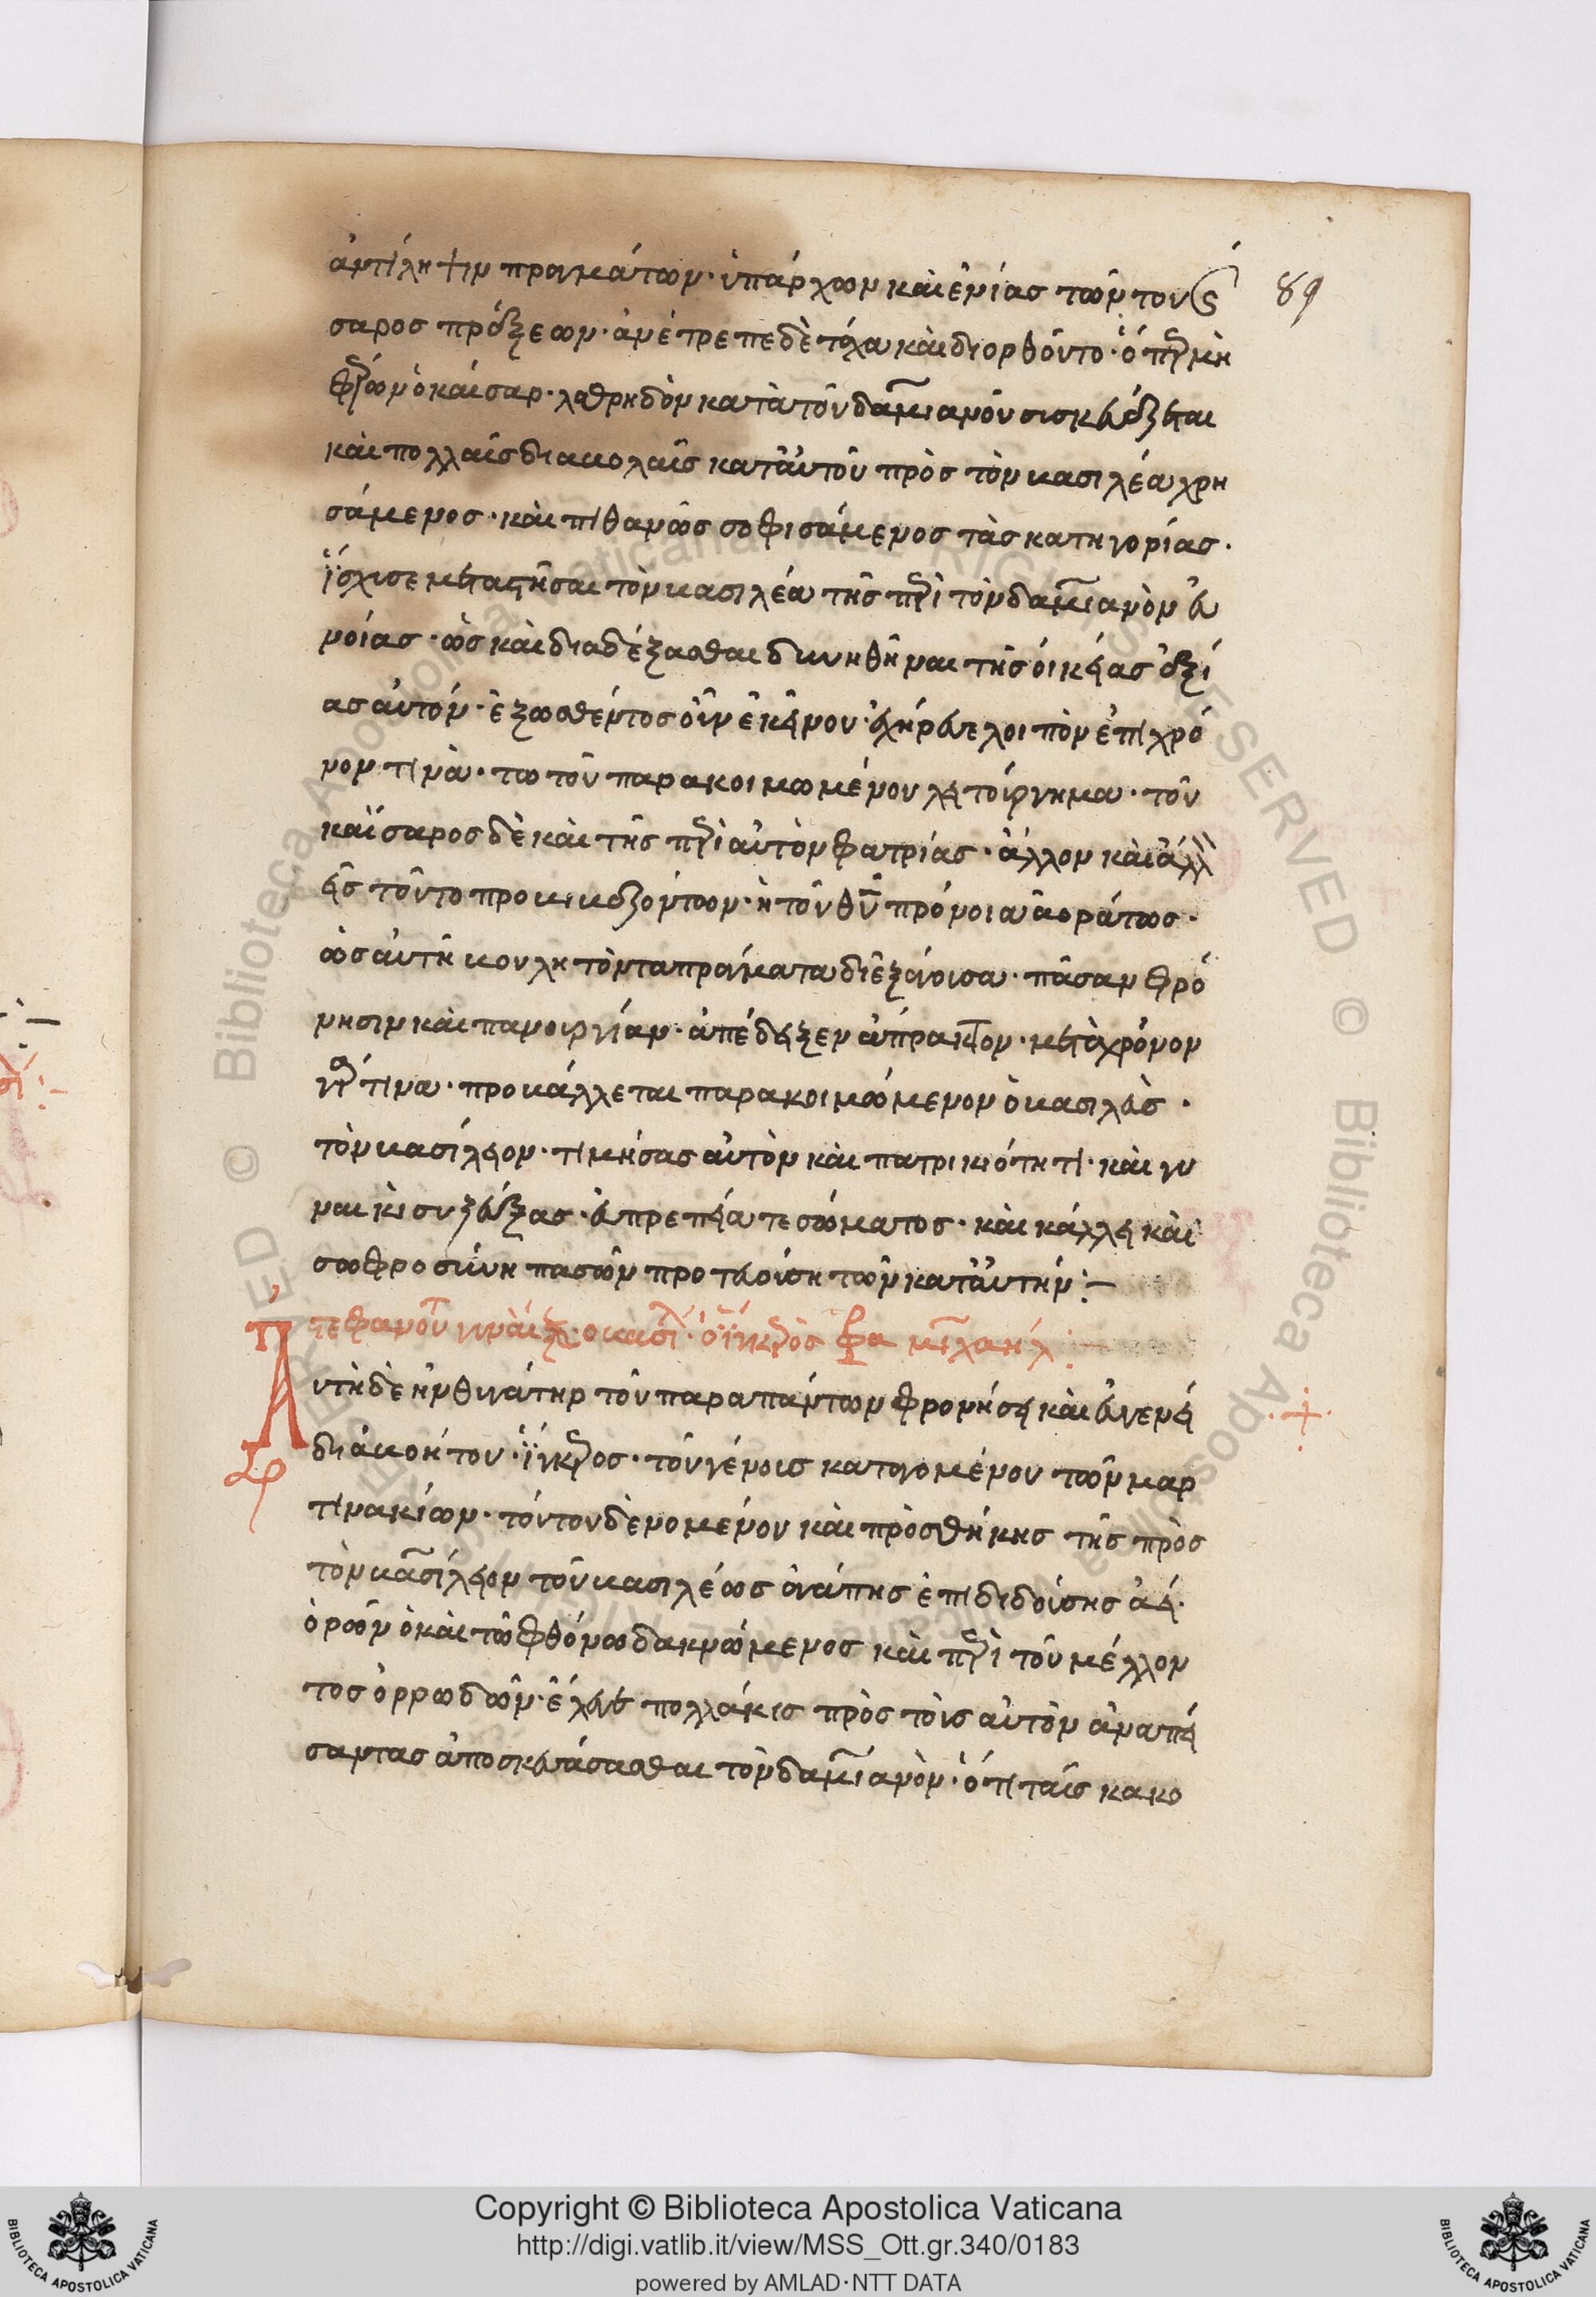 ἀντίληψιν πραγμάτων· ὑπάρχων καὶ ἐνίας τῶν τοῦ Καί
σαρος πράξεων· ἀνέτρεπε δὲ τάχα καὶ διορθοῦντο· ὅπερ μὴ
φέρων ὁ καίσαρ· λαθρηδὸν κατὰ τοῦ δαμιανοῦ σισκευάζεται
καὶ πολλαῖς διαβολαῖς κατ' αὐτοῦ πρὸς τὸν βασιλέα χρη
σάμενος· καὶ πιθανῶς σοφισάμενος τὰς κατηγορίας·
ἴσχισε μεταστῆσαι τὸν βασιλέα τῆς περὶ τὸν δαμιανὸν εὐ
νοίας· ὡς καὶ διαδέξασθαι δυνηθῆναι τῆς οἰκείας ἀξί
ας αὐτόν· ἐξωσθέντος οὖν ἐκείνου· ἐχήρευε λοιπὸν ἐπὶ χρό
νον τινὰ· τω τοῦ παρακοιμωμένου λειτούργημα· τοῦ
καΐσαρος δὲ καὶ τῆς περὶ αὐτὸν φατρίας· ἄλλον καὶ ἄλλ
εἰς τοῦτο προβιβαζόντων· ἡ τοῦ θῦ πρόνοια ἀοράτως·
ὡς αὐτῆ βουλητὸν τα πράγματα διεξάγοισα· πᾶσαν φρό
νησιν καὶ πανουργίαν· ἀπέδειξεν ἄπρακτον· μετὰ χρόνον
γάρ τινα· προβάλλεται παρακοιμώμενον ὁ βασιλεὺς·
τὸν βασίλειον· τιμήσας αὐτὸν καὶ πατρικιότητι· καὶ γυ
ναικὶ συζεύξας· εὐπρεπεία τε σώματος· καὶ κάλλει καὶ
σωφροσύνη πασῶν προτευούση τῶν κατ' αὐτήν:—
Αὐτὴ δὲ ἦν θυγάτηρ τοῦ παρα πάντων φρονήσει καὶ εὐγενεί
διαβοήτου· ἴγκερος· τοῦ γένοις καταγομένου τῶν μαρ
τινακίων· τούτου δὲ νομένου καὶ πρὸσθήκης τῆς πρὸς
τὸν βασίλειον τοῦ βασιλέως ἀγάπης ἐπιδιδούσης ἀεί·
ὁρῶν ὁ καὶ τῶ φθόνω δακνώμενος καὶ περὶ τοῦ μέλλον
τος ὀρρωδῶν· ἔλεγε πολλάκις πρὸς τοὶς αὐτὸν ἀναπεί
σαντας ἀποσκευάσασθαι τὸν δαμιανὸν· ὅτι ταῖς κακο
89
Copyright © Biblioteca Apostolica Vaticana
http://digi.vatlib.it/view/MSS_Ott.gr.340/0183
powered by AMLAD·NTT DATA
BIBLIOTECA APOSTOLICA VATICANA
BIBLIOTECA APOSTOLICA VATICANA